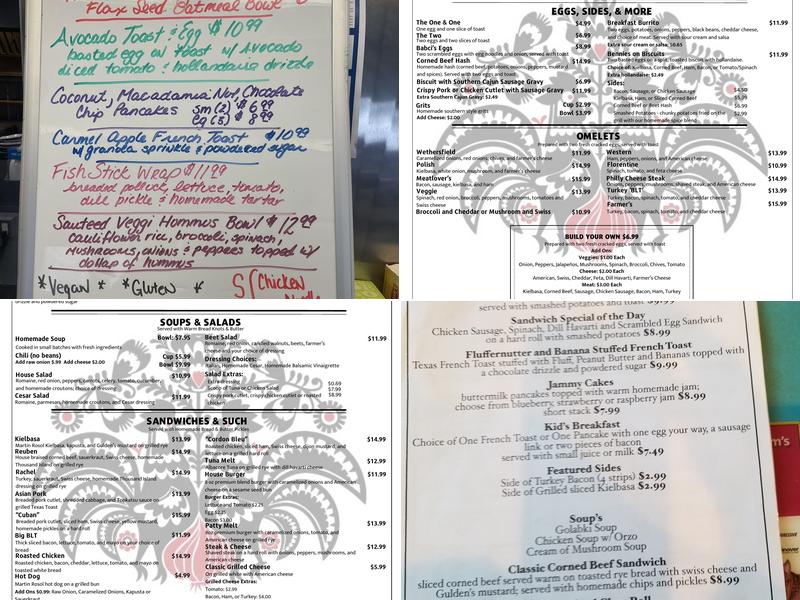 Flax Seed Oatmeal Bowl
Avocado Toast & Egg $10.99
basted egg on toast w/ Avocado
diced tomato & hollandaise drizzle
Coconut, Macadamia Nut, Chocolate
Chip Pancakes Sm (2) $6.99
Lg (3) $8.99
Carmel Apple French Toast $10.99
w/ granola sprinkle & powdered sugar
Fish Stick Wrap $11.99
breaded pollock, lettuce, tomato,
dill pickle & homemade tartar
Sauteed Veggi Hommus Bowl $12.99
cauliflower rice, broccoli, spinach,
mushrooms, onions & peppers topped w/
dollop of hummus
*Vegan * *Gluten *
S/ Chicken
EGGS, SIDES, & MORE
The One & One $4.99
One egg and one slice of toast
The Two $6.99
Two eggs and two slices of toast
Babci's Eggs $8.99
Two scrambled eggs with egg noodles and onion, served with toast
Corned Beef Hash $14.99
Homemade hash (corned beef, potatoes, onions, peppers, mustard
and spices). Served with two eggs and toast
Biscuit with Southern Cajun Sausage Gravy $6.99
Crispy Pork or Chicken Cutlet with Sausage Gravy $11.99
Extra Southern Cajun Gravy: $2.49
Grits Cup $2.99
Homemade southern style grits Bowl $3.99
Add Cheese: $2.00
Breakfast Burrito $11.99
Two eggs, potatoes, onions, peppers, black beans, cheddar cheese,
and choice of meat. Served with sour cream and salsa
Extra sour cream or salsa: $0.65
Bennies on Biscuits $11.99
Two basted eggs on a split, toasted biscuit with hollandaise.
Choice of: Kielbasa, Corned Beef, Ham, Bacon, or Tomato/Spinach
Extra hollandaise: $2.49
Sides:
Bacon, Sausage, or Chicken Sausage $4.50
Kielbasa, Ham, or Sliced Corned Beef $5.99
Corned Beef Hash $8.99
Smashed Potatoes - chunky potatoes fried on the $2.99
grill with our homemade spice blend
OMELETS
Prepared with two fresh cracked eggs, served with toast
Wethersfield $11.99
Caramelized onions, red onions, chives, and farmer's cheese
Polish $14.99
Kielbasa, white onion, mushroom, and farmer's cheese
Meatlover's $15.99
Bacon, sausage, kielbasa, and ham
Veggie $13.99
Spinach, red onion, broccoli, peppers, mushrooms, tomatoes and
Swiss cheese
Broccoli and Cheddar or Mushroom and Swiss $10.99
Western $13.99
Ham, peppers, onions, and American cheese
Florentine $10.99
Spinach, tomato, and feta cheese
Philly Cheese Steak $14.99
Onions, peppers, mushrooms, shaved steak, and American cheese
Turkey 'BLT' $13.99
Turkey, bacon, spinach, tomato, and cheddar cheese
Farmer's $15.99
Turkey, bacon, spinach, tomato, and cheddar cheese
BUILD YOUR OWN $6.99
Prepared with two fresh cracked eggs, served with toast
Add Ons:
Veggies: $1.00 Each
Onion, Peppers, Jalapeños, Mushrooms, Spinach, Broccoli, Chives, Tomato
Cheese: $2.00 Each
American, Swiss, Cheddar, Feta, Dill Havarti, Farmer's Cheese
Meat: $3.00 Each
Kielbasa, Corned Beef, Sausage, Chicken Sausage, Bacon, Ham, Turkey
drizzle and powdered sugar
SOUPS & SALADS
Served with Warm Bread Knots & Butter
Homemade Soup Bowl: $7.95
Cooked in small batches with fresh ingredients
Chili (no beans) Cup $5.99
Add raw onion $.99 Add cheese $2.00 Bowl $9.99
House Salad $10.99
Romaine, red onion, peppers, carrots, celery, tomato, cucumber,
and homemade croutons; choice of dressing
Cesar Salad $11.99
Romaine, parmesan, homemade croutons, and Cesar dressing
Beet Salad $11.99
Romaine, red onion, candied walnuts, beets, farmer's
cheese and your choice of dressing
Dressing Choices:
Italian, Homemade Cesar, Homemade Balsamic Vinaigrette
Salad Extras:
Extra dressing $0.69
Scoop of Tuna or Chicken Salad $7.99
Crispy pork cutlet, crispy chicken cutlet or roasted $8.99
chicken
SANDWICHES & SUCH
Served with Homemade Bread & Butter Pickles
Kielbasa $13.99
Martin Rosol Kielbasa, kapusta, and Gulden's mustard on grilled rye
Reuben $14.99
House braised corned beef, sauerkraut, Swiss cheese, homemade
Thousand Island on grilled rye
Rachel $14.99
Turkey, sauerkraut, Swiss cheese, homemade Thousand Island
dressing on grilled rye
Asian Pork $13.99
Breaded pork cutlet, shredded cabbage, and Tonkatsu sauce on
grilled Texas Toast
"Cuban" $15.99
Breaded pork cutlet, sliced ham, Swiss cheese, yellow mustard,
homemade pickles on a hard roll
Big BLT $11.99
Thick sliced bacon, lettuce, tomato, and mayo on your choice of
bread
Roasted Chicken $14.99
Roasted chicken, bacon, cheddar, lettuce, tomato, and mayo on
toasted white bread
Hot Dog $4.99
Martin Rosol hot dog on a grilled bun
Add Ons $0.99: Raw Onion, Caramelized Onions, Kapusta or
Sauerkraut
"Cordon Bleu" $14.99
Roasted chicken, sliced ham, Swiss cheese, dijon mustard, and
lettuce on a grilled hard roll
Tuna Melt $12.99
Albacore Tuna on grilled rye with dill havarti cheese
House Burger $11.99
8oz premium blend burger with caramelized onions and American
cheese on a sesame seed bun
Burger Extras:
Lettuce and Tomato $2.25
Egg $2.25
Bacon $3.00
Patty Melt $13.99
8oz premium burger with caramelized onions, tomato, and
American cheese on grilled rye
Steak & Cheese $12.99
Shaved steak on a hard roll with onions, peppers, mushrooms, and
American cheese
Classic Grilled Cheese $5.99
On grilled white with American cheese
Grilled Cheese Extras:
Tomato: $2.99
Bacon, Ham, or Turkey: $4.00
served with smashed potatoes and toast $9.99
Sandwich Special of the Day
Chicken Sausage, Spinach, Dill Havarti and Scrambled Egg Sandwich
on a hard roll with smashed potatoes $8.99
Fluffernutter and Banana Stuffed French Toast
Texas French Toast stuffed with Fluff, Peanut Butter and Bananas topped with
a chocolate drizzle and powdered sugar $9.99
Jammy Cakes
buttermilk pancakes topped with warm homemade jam;
choose from blueberry, strawberry or raspberry jam $8.99
short stack $7.99
Kid's Breakfast
Choice of One French Toast or One Pancake with one egg your way, a sausage
link or two pieces of bacon
served with small juice or milk $7.49
Featured Sides
Side of Turkey Bacon (4 strips) $2.99
Side of Grilled sliced Kielbasa $2.99
Soup's
Golabki Soup
Chicken Soup w/ Orzo
Cream of Mushroom Soup
Classic Corned Beef Sandwich
sliced corned beef served warm on toasted rye bread with swiss cheese and
Gulden's mustard; served with homemade chips and pickles $8.99